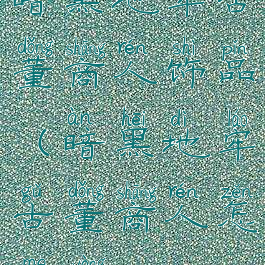 暗黑地牢古
dǒng shāng rén shì pǐn
董商人饰品
àn hēi dì láo
（暗黑地牢
gǔ dǒng shāng rén zěn
古董商人怎